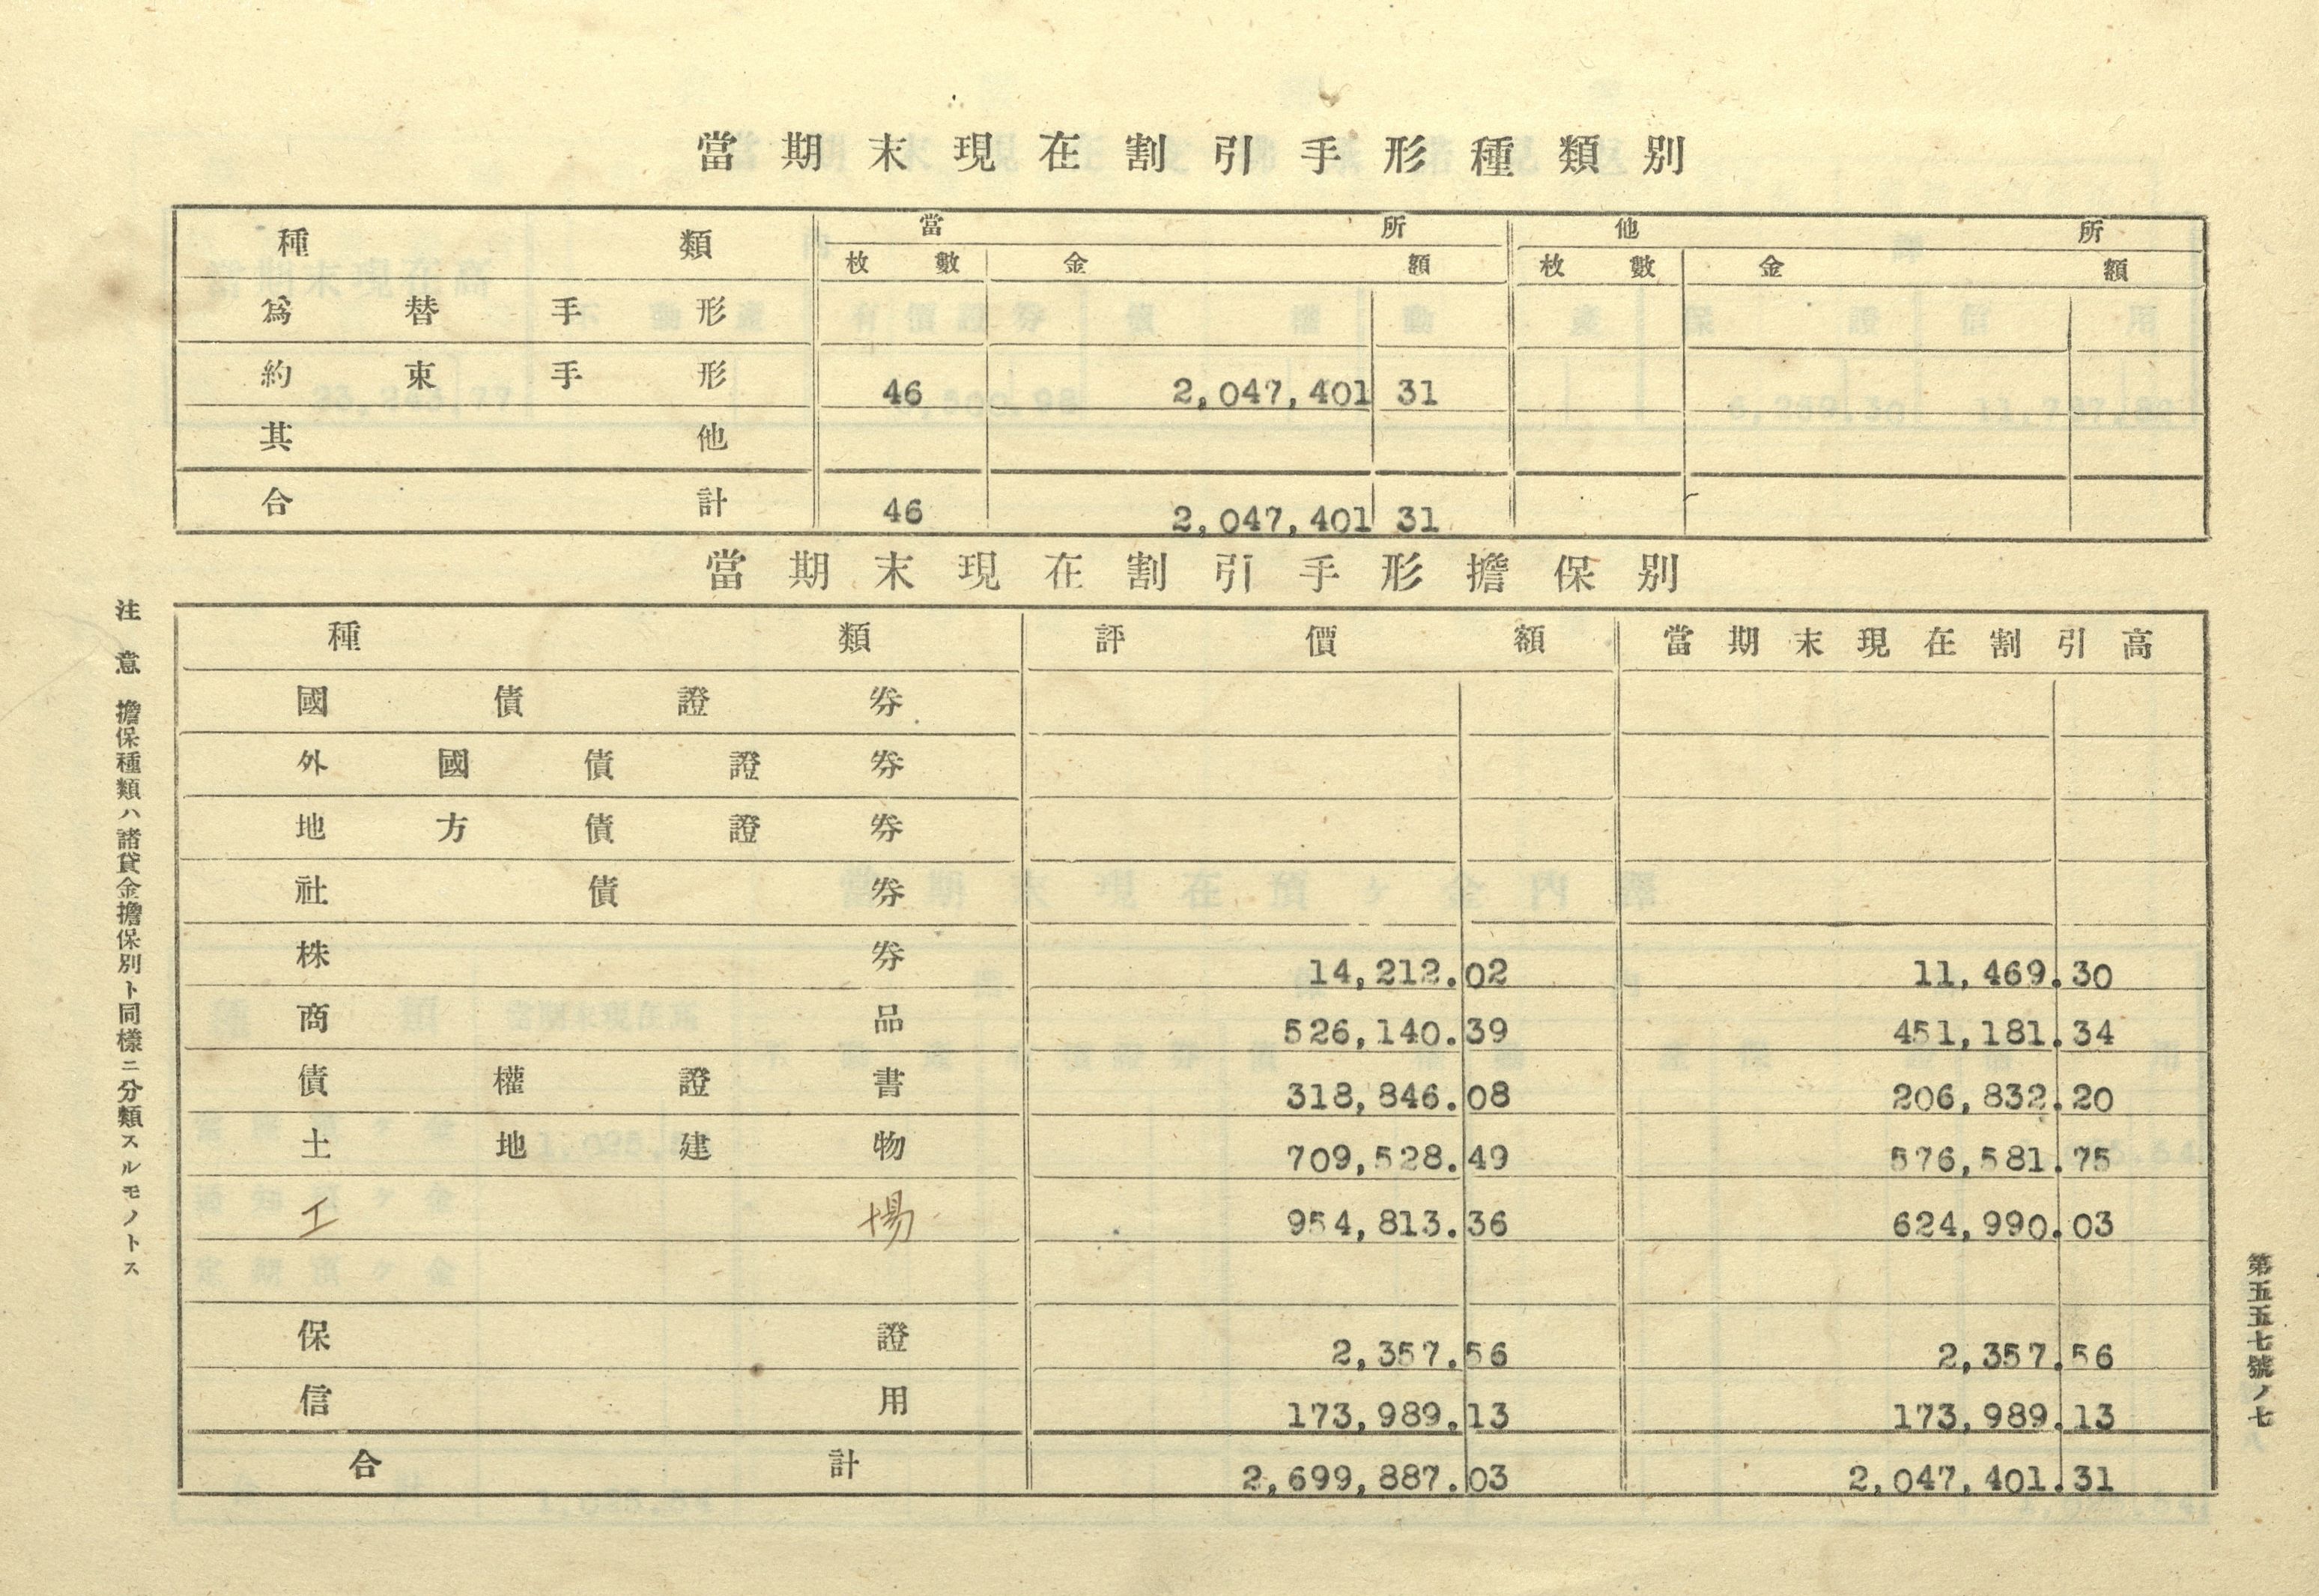 當期末現在割引手形種類別
種類 當所 他所
枚數 金額 枚數 金額
爲替手形
約束手形 46 2,047,401 31
其他
合計 46 2,047,401 31
當期末現在割引手形擔保別
種類 評價額 當期末現在割引高
國債證券
外國債證券
地方債證券
社債券
株券 14,212.02 11,469.30
商品 526,140.39 451,181.34
債權證書 318,846.08 206,832.20
土地建物 709,528.49 576,581.75
工場 954,813.36 624,990.03
保證 2,357.56 2,357.56
信用 173,989.13 173,989.13
合計 2,699,887.03 2,047,401.31
注意 擔保種類ハ諸貸金擔保別ト同樣ニ分類スルモノトス
第五五七號ノ七